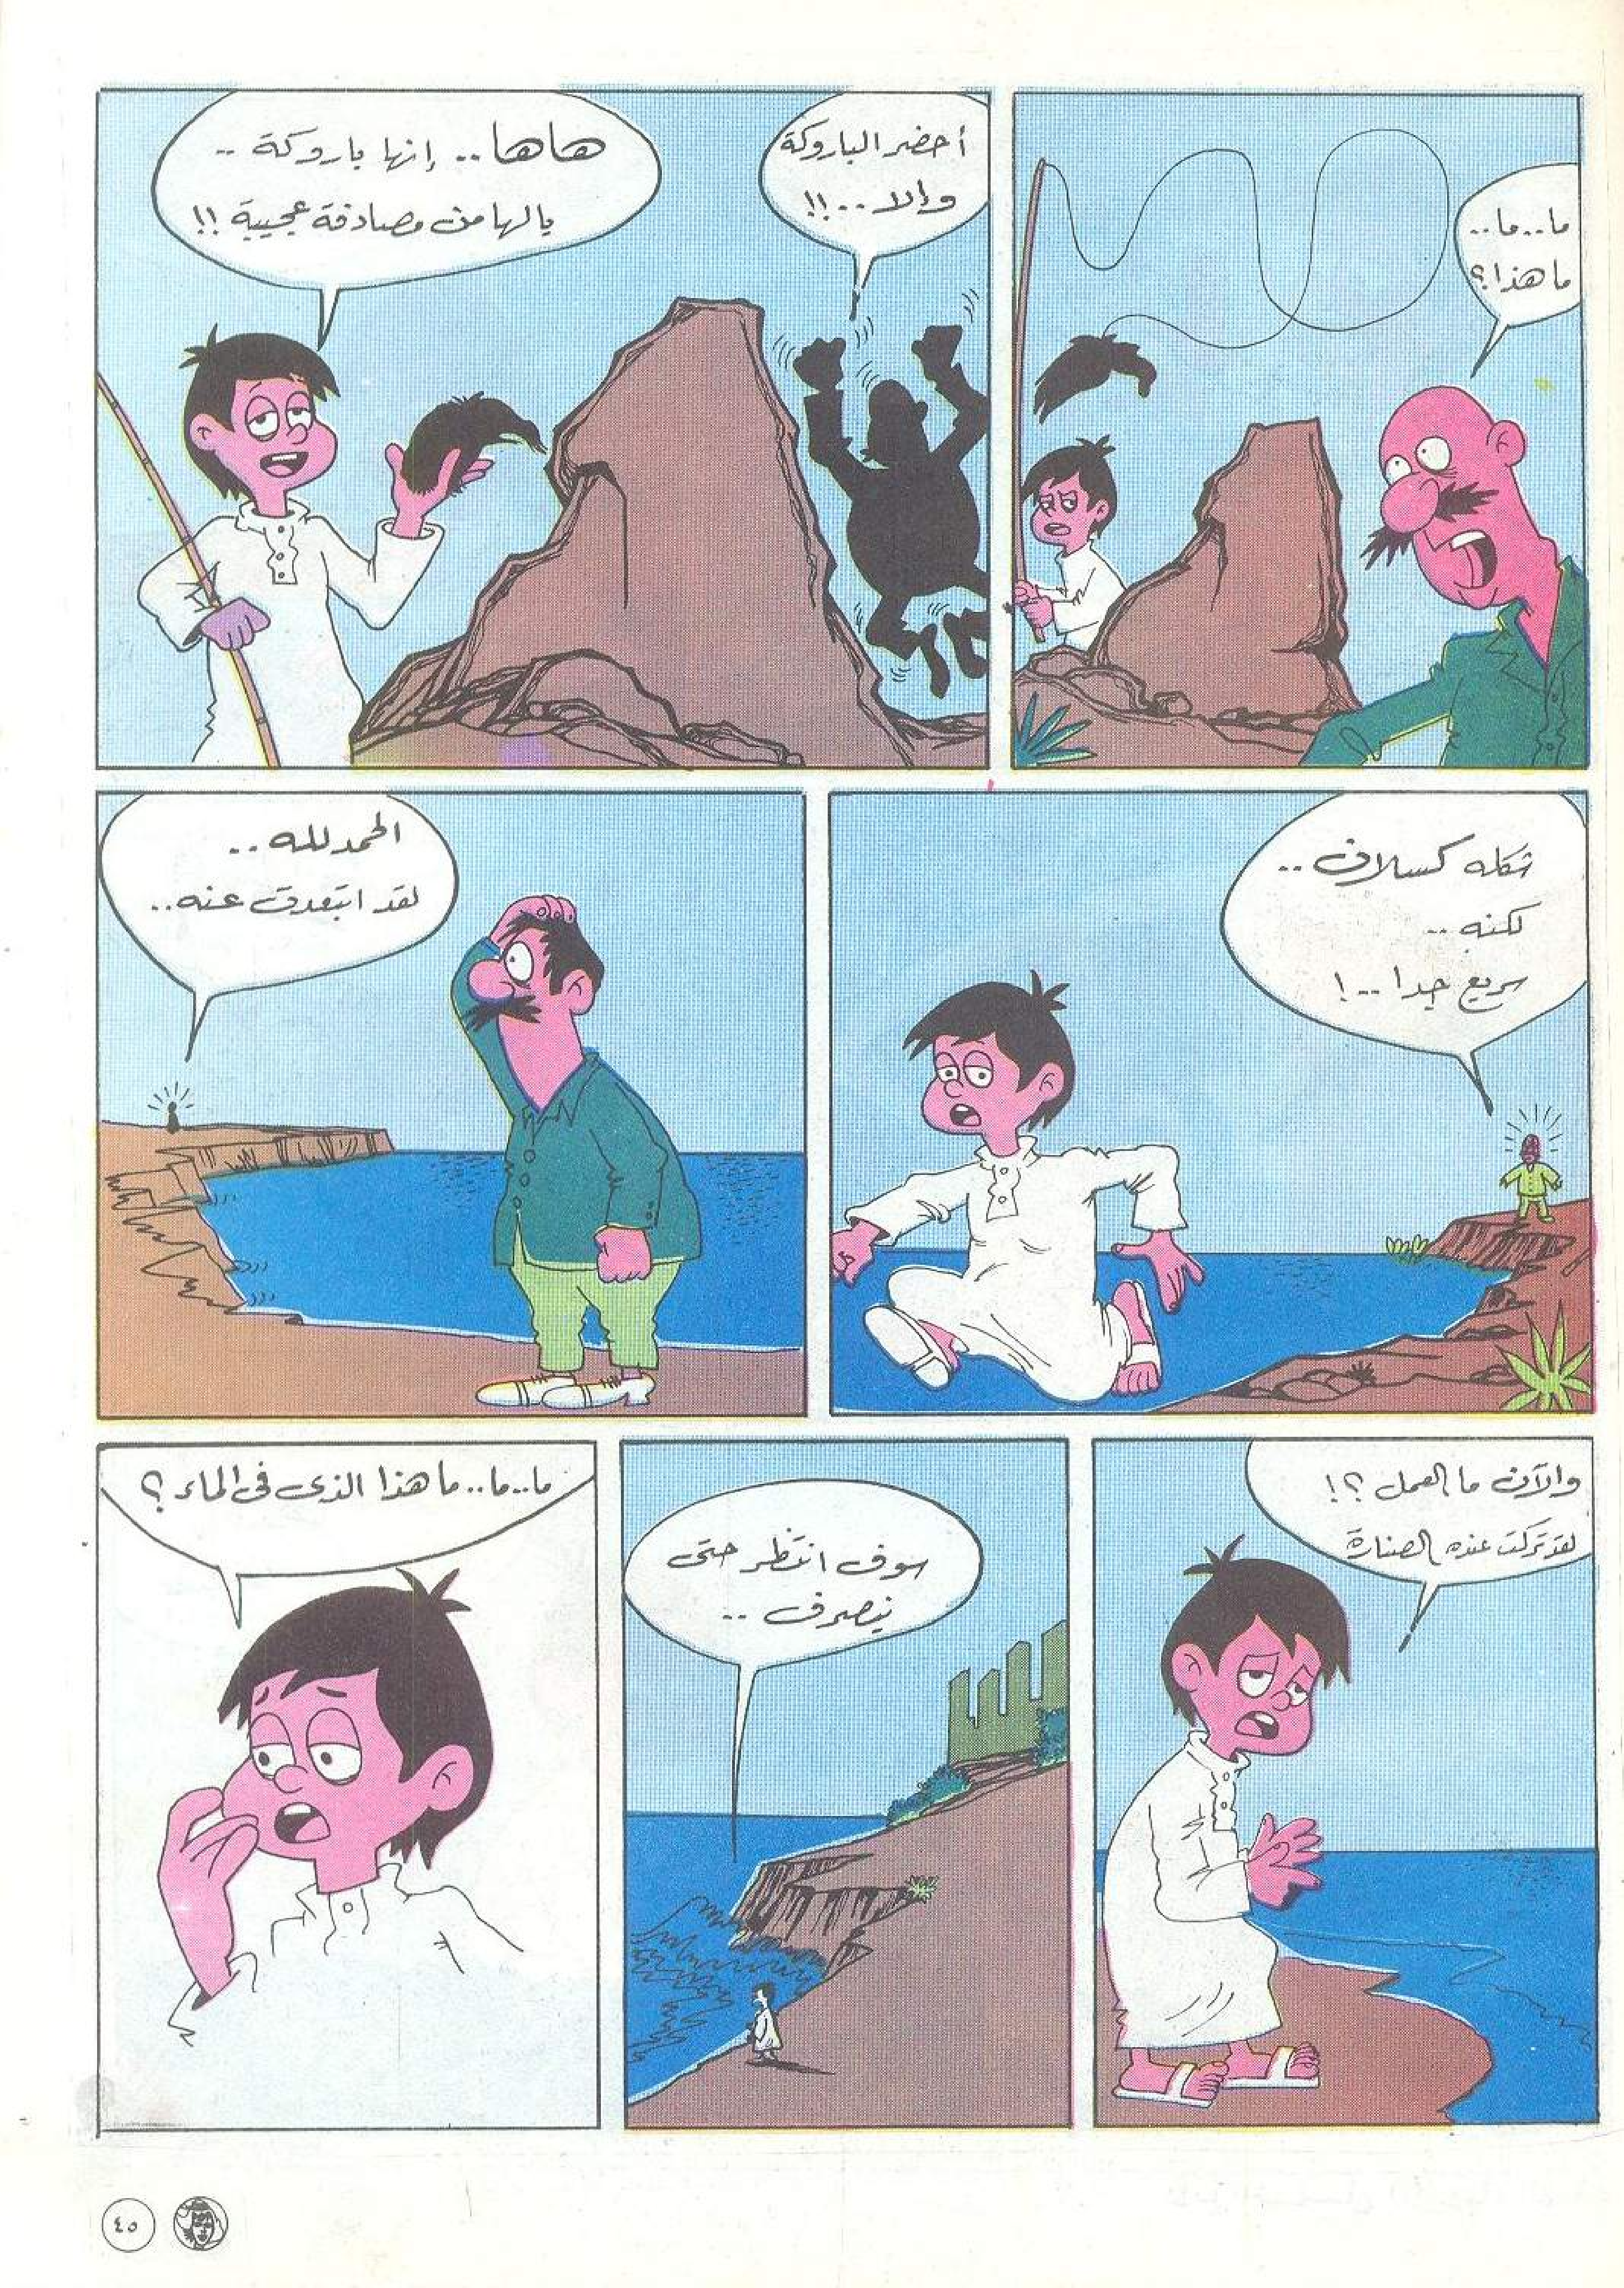 ما..ما..
ما هذا؟
أحضر الباروكة
وإلا..!!
هاها.. إنها باروكة ..
يالها من مصادفة عجيبة !!
شكله كسلان..
لكنه ..
سريع جدا ..!
الحمد لله ..
لقد ابتعدت عنه..
والآن ما العمل ؟!
لقد تركت عنده الصنارة
سوف انتظر حتى
ينصرف ..
ما..ما..ما هذا الذى فى الماء ؟
٤٥